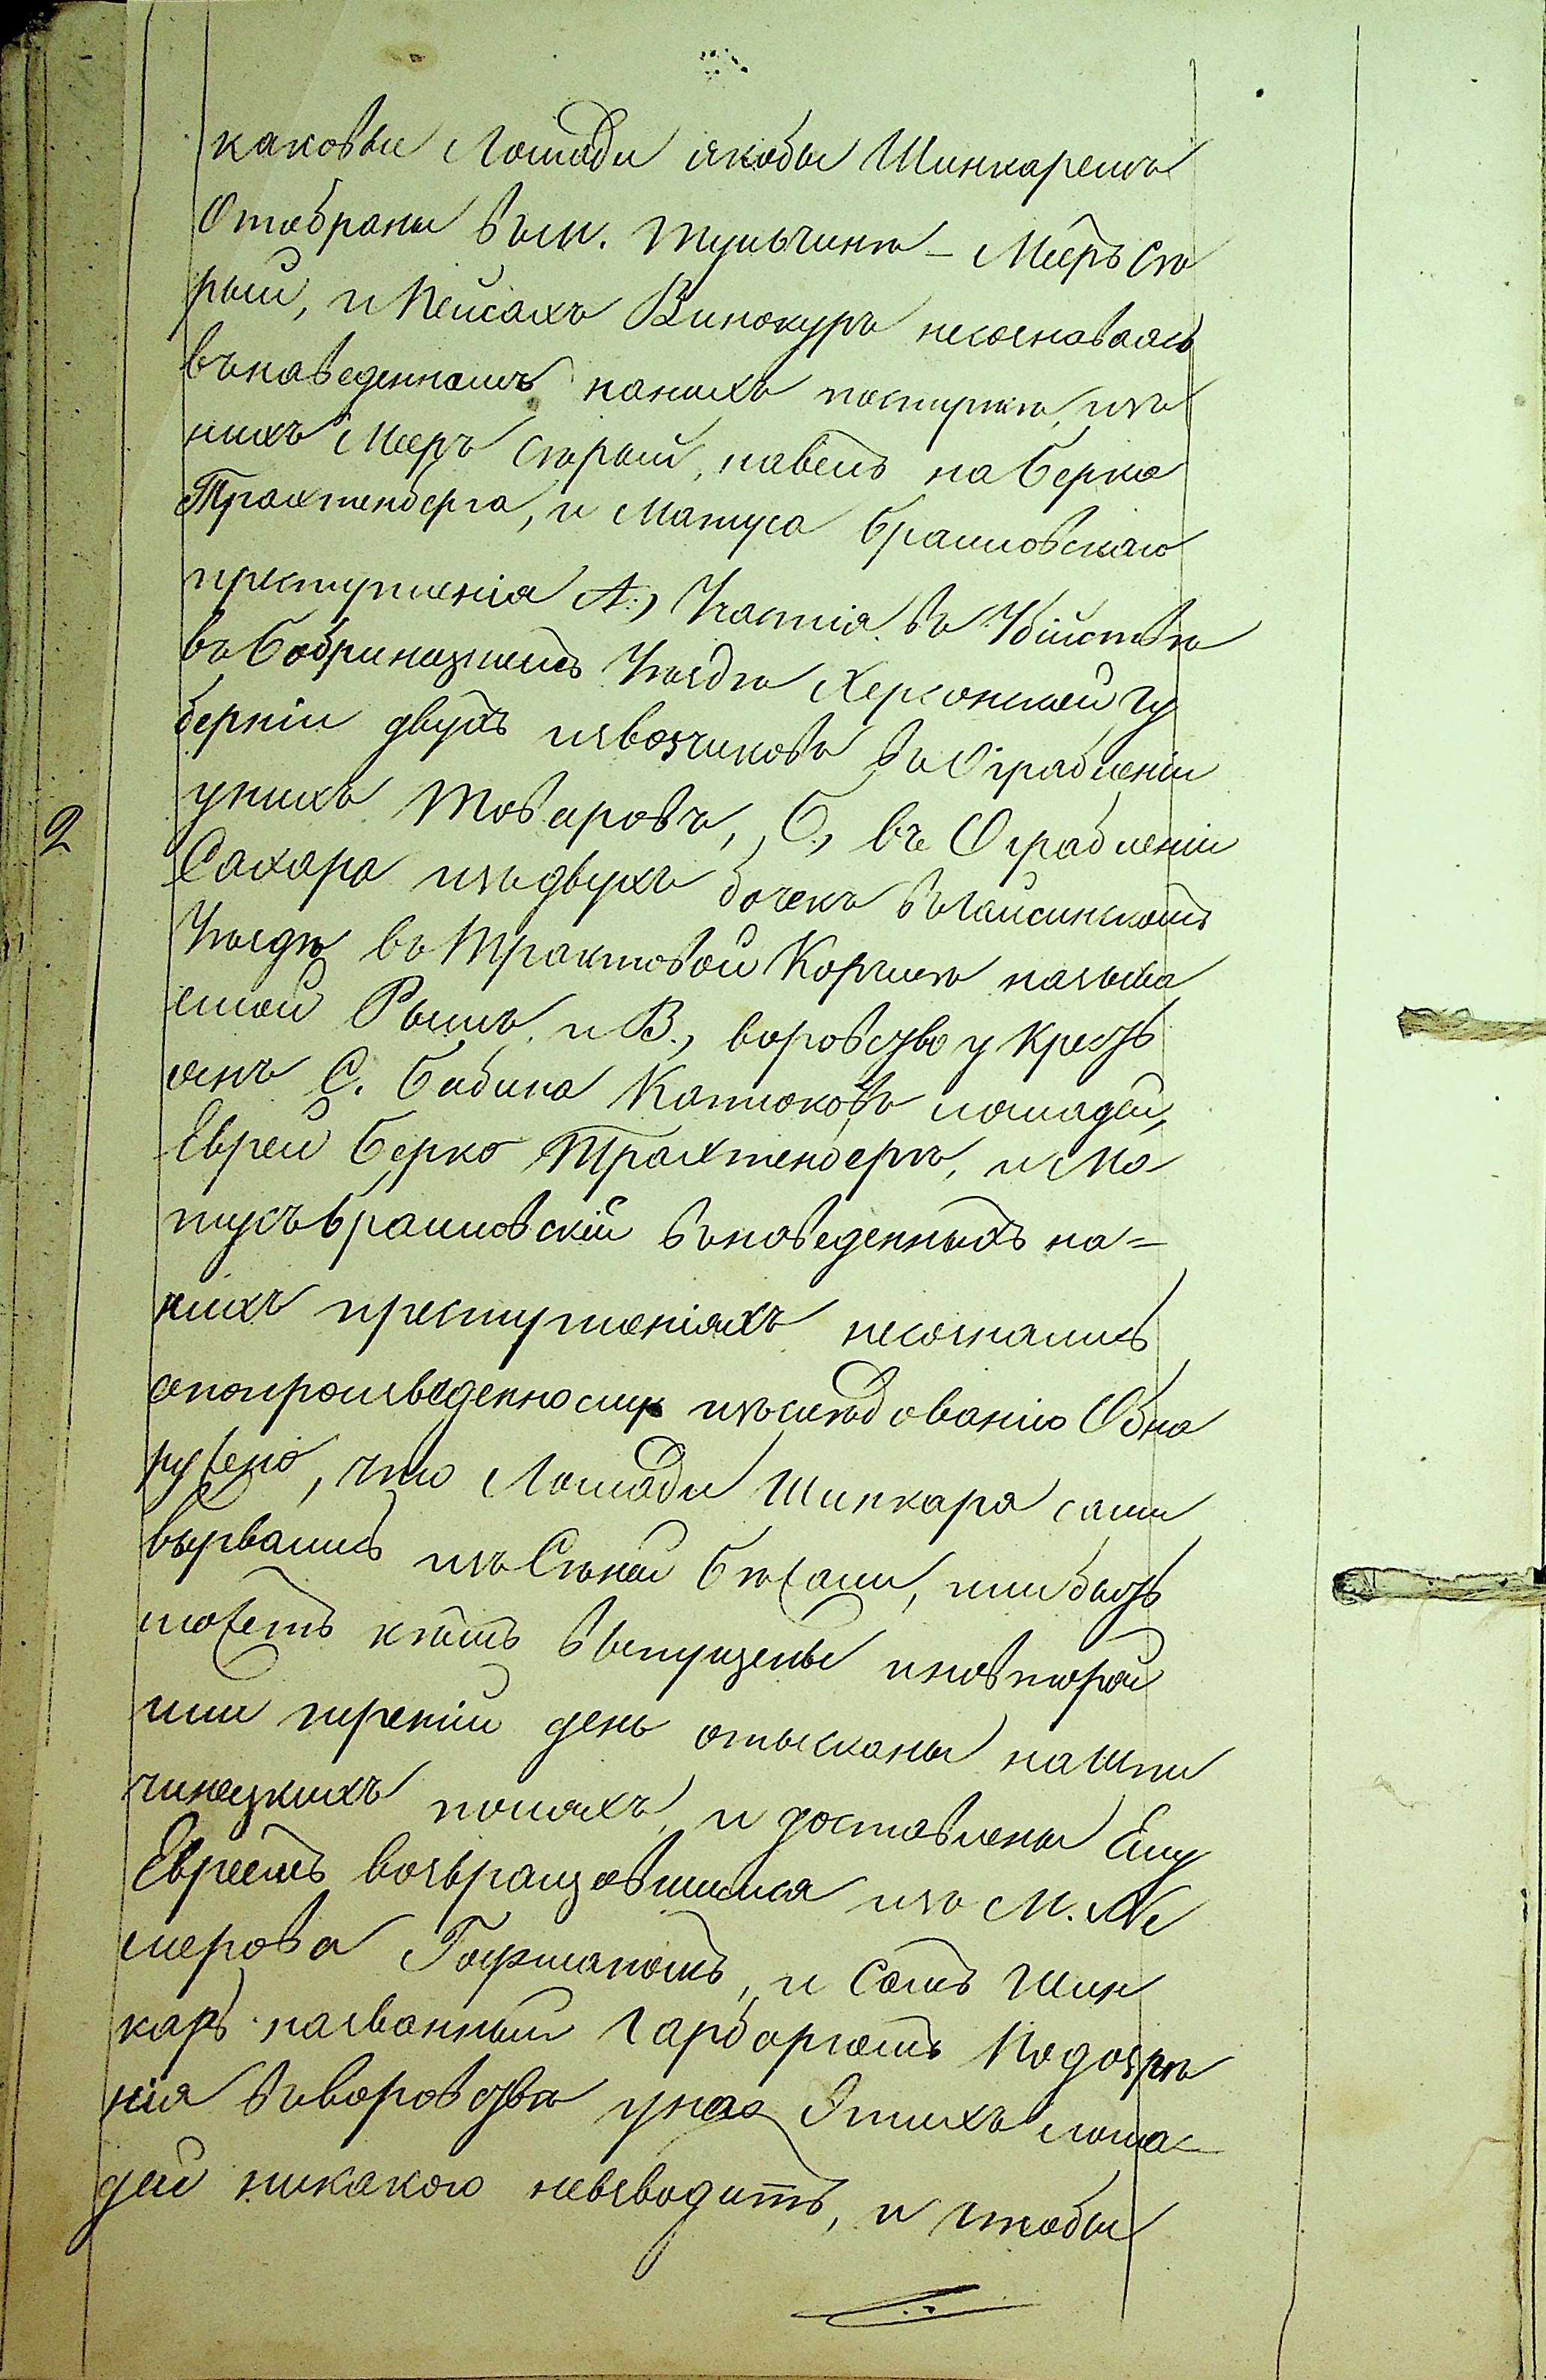 каковы Лошади якобы Шинкаремъ
Отобраны въ м. Тульчинѣ – Мееръ Ста
рый, и Пейсахъ Винокуръ несознаваясь
въ наведенномъ на нихъ поступкѣ, изъ
нихъ Мееръ Старый, навелъ на Берка
Трахтенберга, и Матуса Браиловскаго
преступленія А., Участія въ Убійствѣ
въ Бобринецкомъ Уѣздѣ Херсонской Гу
берніи двухъ извозчиковъ въ Ограбленіи
у нихъ Товаровъ, Б., въ Ограбленіи
2
Сахара изъ двухъ бочекъ въ Гайсинскомъ
Уѣздѣ въ Трактовой Корчмѣ называ
емой Рыпъ, и В., воровство у Кресть
янъ С. Бабина Катюковъ лошадей,
Евреи Берко Трахтенбергъ, и Ма-
тусъ Браиловскій въ наведенныхъ на=
нихъ преступленіяхъ несознались
а по произведенному изслѣдованію Обна
ружено, что Лошади Шинкаря сами
вырвались изъ Сѣней бѣжали, или быть
можетъ кѣмъ выпущены и на второй
или третій день отысканы на Шпи
чинецкихъ поляхъ, и доставлены Ему
Евреемъ возвращавшимся изъ М. Не
мерова Гофманомъ, и Самъ Шин
карь названный Гарбаремъ Подозрѣ
нія въ воровствѣ у него Этихъ лоша-
дей никакого невзводитъ, и чтобы